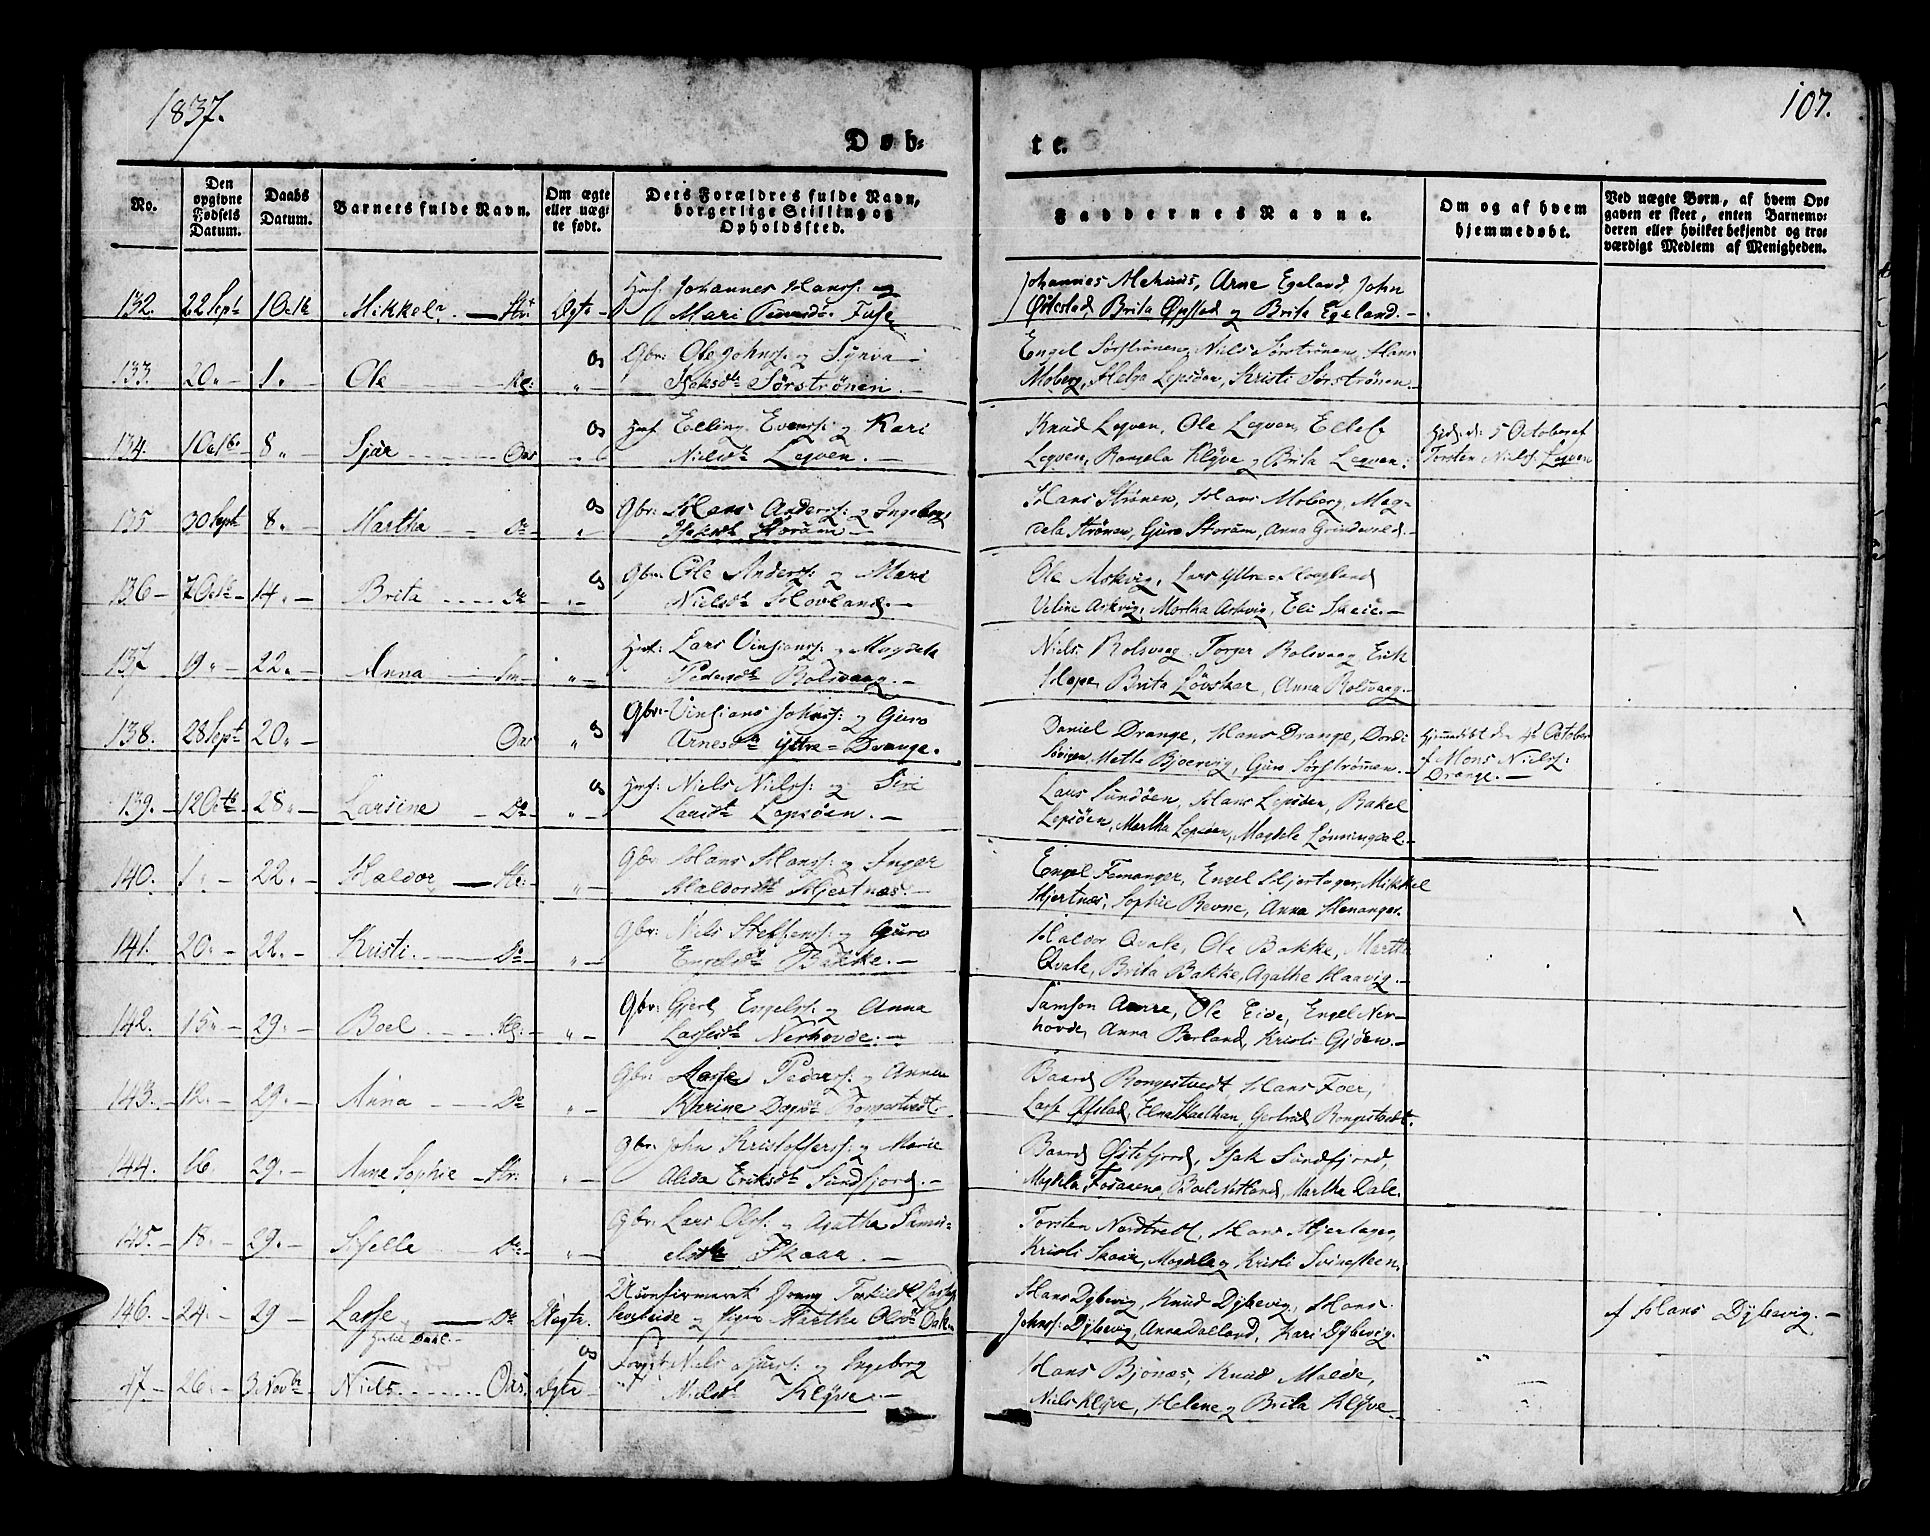 1837.
107.
Døb-
te.
No.
Den opgivne Fødsels Datum.
Daabs Datum.
Barnets fulde Navn.
Om ægte eller uægte født.
Dets Forældres fulde Navn, borgerlige Stilling og Opholdssted.
Faddernes Navne.
Om og af hvem hjemmedøbt.
Ved uægte Børn, af hvem Opgaven er skeet, enten Barnemoderen eller hvilket bekjendt og troværdigt Medlem af Menigheden.
132. 22 Sept 1 Octb Mikkel Ægte Johannes Hanss: og
Mari Fuse
Johannes Arne Egeland, John
Østestad, Brita Opstad og Brita Egeland.
133. 20. 1. Ole Gbr: Ole Johnss: og Synva
Isaksdtr Sørstrønen.
Engel Sørstrønen, Niels Sørstrønen, Hans
Moberg, Helga Lepsøen, Kristi Sørstrønen.
134. 1 Octb. 8 Sjur Os Elling Evenss: og Kari
Nielsdtr Legven.
Knud Legven, Ole Legven, Ellef
Legven, Rangela Klyve og Brita Legven.
5 October af
Torsten Nielss: Legven
135 30 Sept 8. Martha Do Os Gbr: Hans Anderss: og Ingeborg
Storum
Hans Strønen, Hans Moberg, Mag-
dela Strønen, Guro Storum, Anna Grindevold.
136 7 Octb 14. Brita Do Os Gbr: Ole Anderss: og Mari
Nielsdtr Hovland.
Ole Askvig, Lars Yttre=Hougland
Veline Askvig, Martha Askvig, Eli Skeie.
137 19 22. Anna Lars Vinsianss: og Magdela
Pedersdtr Rolsvaag.
Niels Rolsvaag, Torger Rolsvaag, Erik
Hope, Brita Løvskar, Anna Rolsvaag.
138. 28 Sept 20. Os Gbr: Vinsians Johnss: og Guro
Arnesdtr Yttre=Drange.
Daniel Drange, Hans Drange, Dordi
Søvigen, Metta Bjørvig, Guro Sørstrømen.
Hjemmedøbt den 4de October
af Mons Nielss:
Drange.
139. 12 Octb 28. Larsine Do Os Niels Nielss: og Siri
Larsdtr Lepsøen.
Lars Sundøen, Hans Lepsøen, Rakel
Lepsøen, Martha Lepsøen, Magdele Lønningdal.
140. 1. 22. Haldor Gbr: Hans Hanss: og Inger
Haldorsdtr Hjertnæs.
Engel Femanger, Engel Hjertager, Mikkel
Hjertnæs, Sophie Revne, Anna Henanger.
141. 20. 22. Kristi Do Gbr: Niels Steffenss: og Guro
Engelsdtr Bakke.
Haldor Qvale, Ole Bakke, Martha
Qvale, Brita Bakke, Agathe Haavig.
142. 15. 29. Boel Gbr: Gjert Engelss: og Anna
Lassesdtr Nerhovde.
Samson Ole Eide, Engel Ner-
hovde, Anna Berland, Kristi Gjøen.
143. 12. 29. Anna Do Gbr: Lasse Pederss: og Anna
Karine Rongestvedt
Baard Rongestvedt, Hans Foer,
Lasse Opstad, Gertrud Rongestvedt.
144. 16. 29. Anne Sophie Gbr: John Kristofferss: og Marie
Alida Eriksdtr Sundfjord.
Baard Østefjord, Isak Sundfjord,
Magdela Fosanene, Boel Natland, Martha Dale.
145. 18. 29. Do Gbr: Lars Olss: og Agatha Samu-
elsdtr Skaar.
Torsten Nordtvedt, Hans Hjertager,
Kristi Skaar, Magdela og Kristi Svingsteen.
146. 24. 29 Lasse Do Uægte Uconfirmeret Dreng
og Pigen Martha Olsdtr
Hans Dybevig, Knud Dybevig, Hans
Johnss: Dybevig, Anna Dalland, Kari Dybevig.
af Hans Dybevig.
47 26. 3 Novbr Niels Os Ægte Niels Sjurss: og Ingeborg
Nielsdtr Klyve.
Hans Bjønæs, Knud Malde,
Niels Klyve, Helene og Brita Klyve